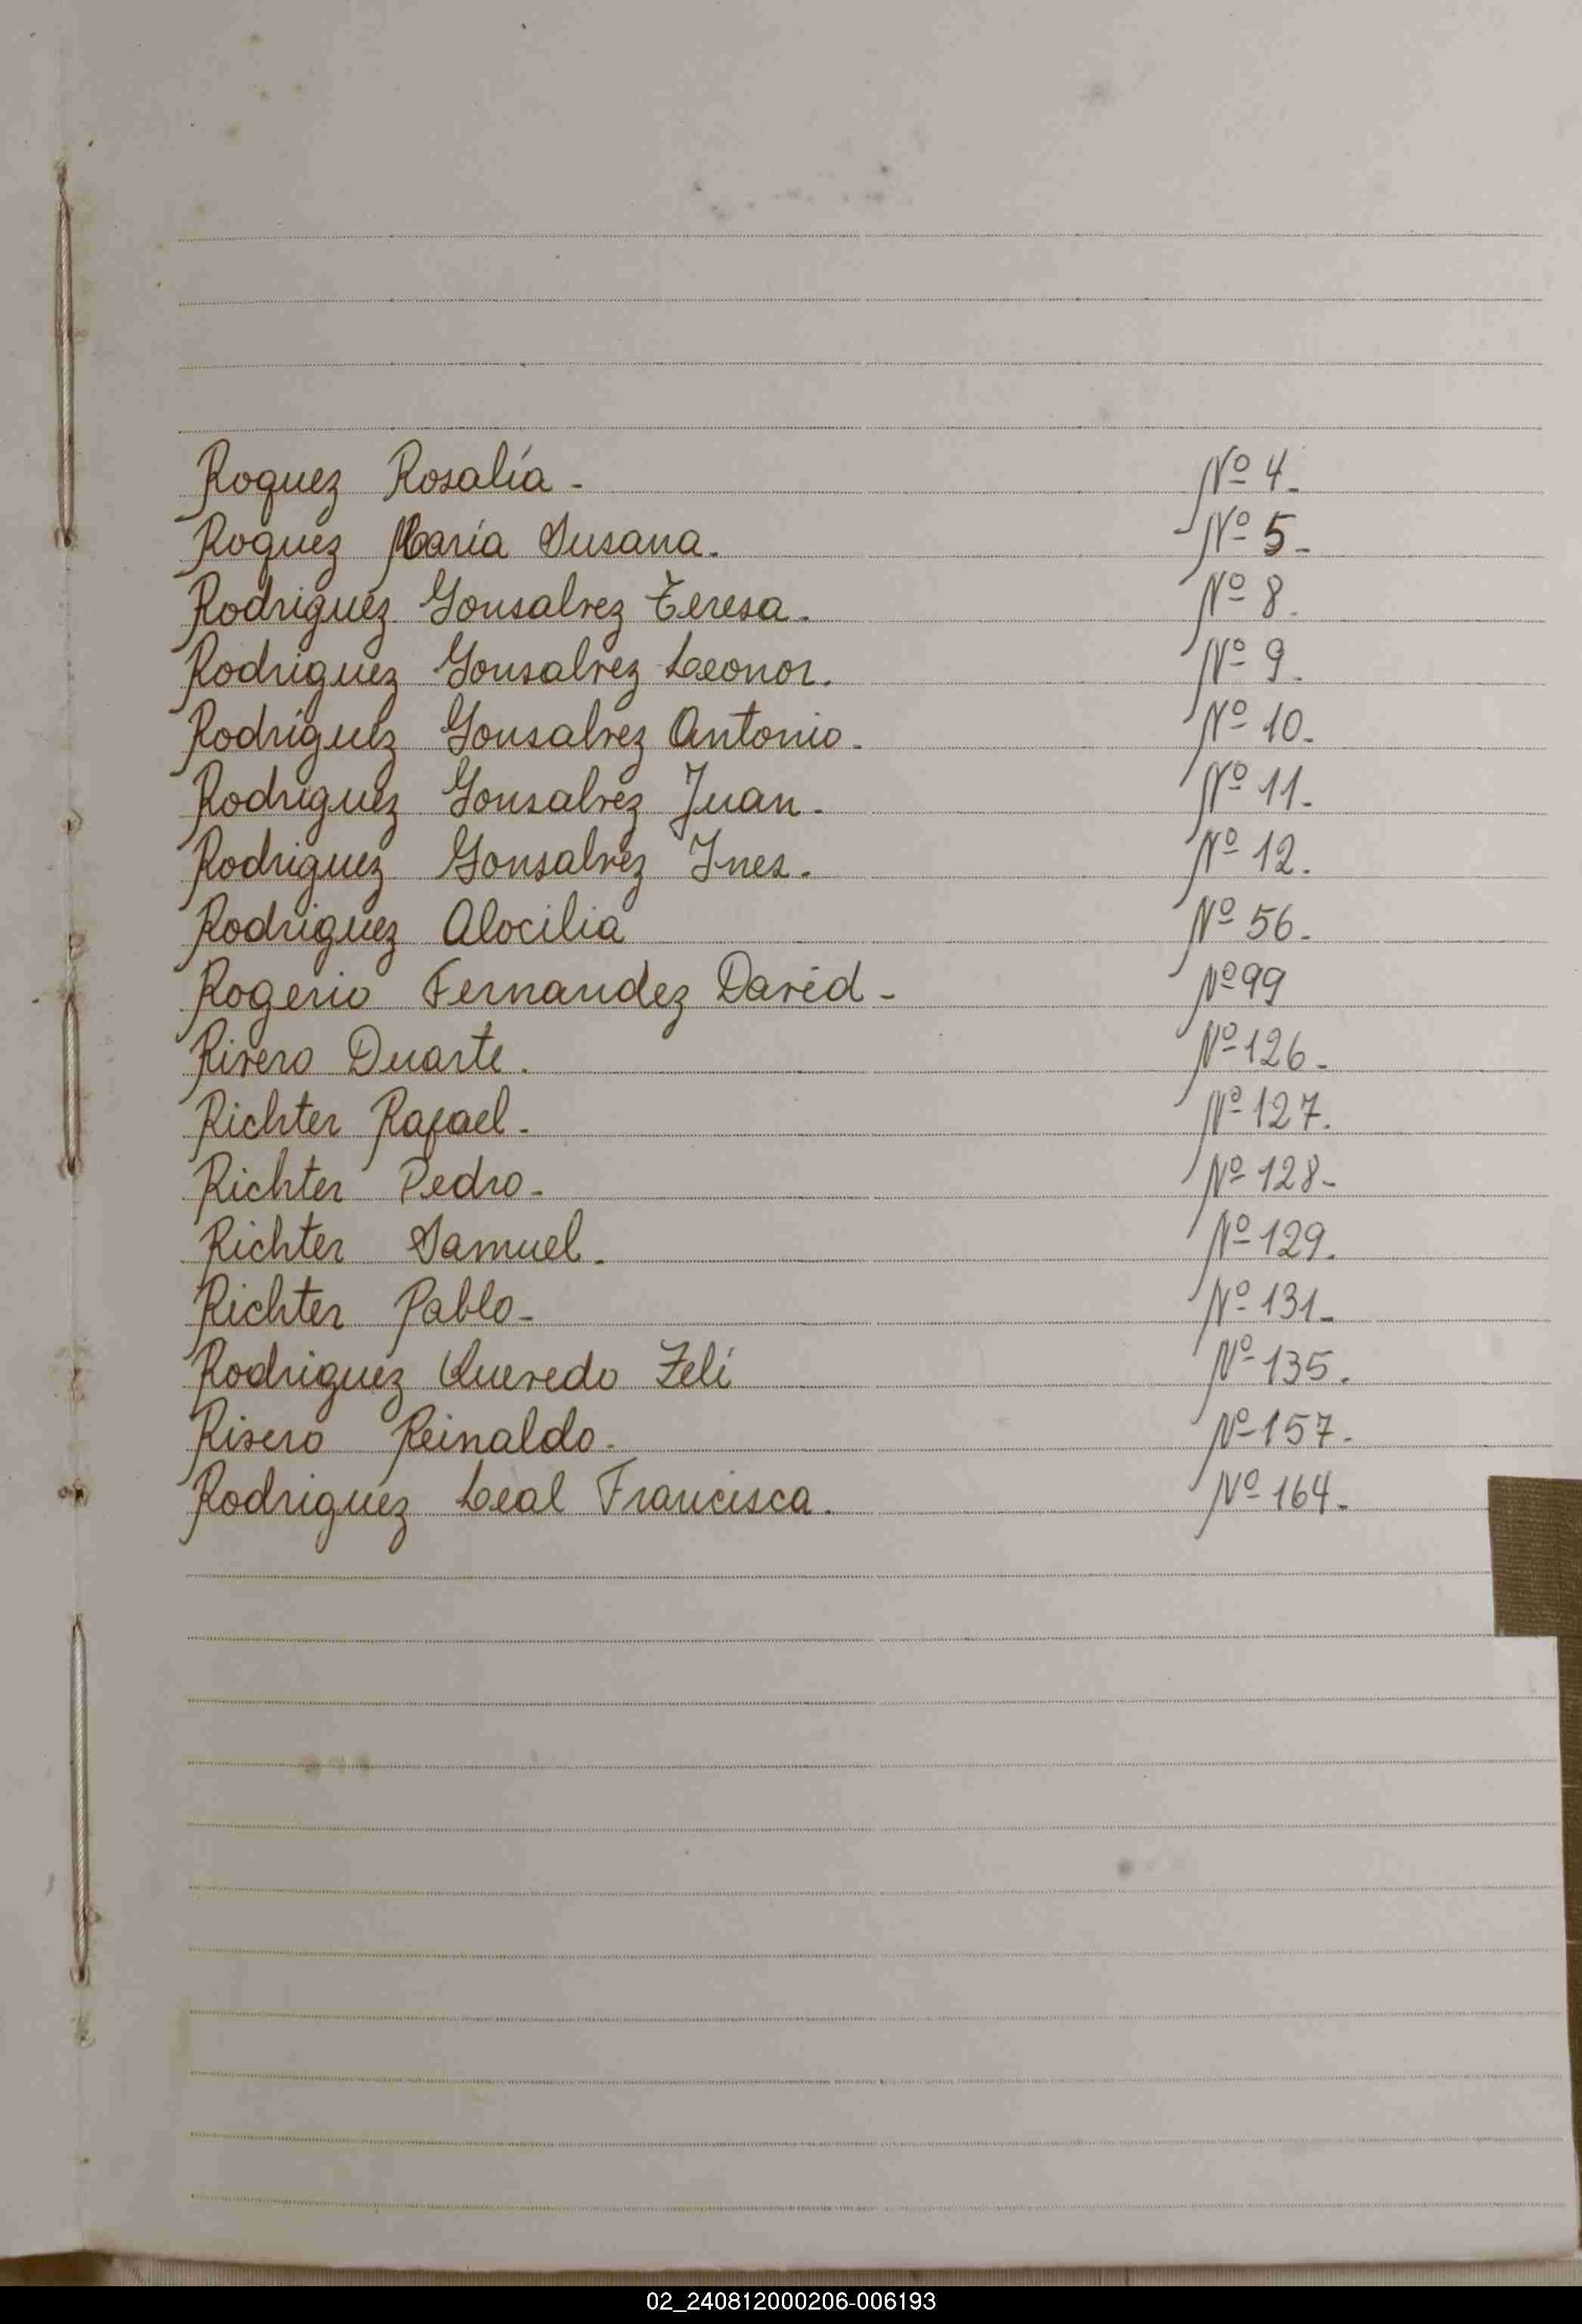 Roquez Rosalía - Nº 4.
Roquez María Susana. Nº 5.
Rodriguez Gonsalvez Teresa. Nº 8.
Rodriguez Gonsalvez Leonor. Nº 9.
Rodriguez Gonsalvez Antonio. Nº 10.
Rodriguez Gonsalvez Juan. Nº 11.
Rodriguez Gonsalvez Ines. Nº 12.
Rodriguez Alocilia Nº 56.
Rogerio Fernandez David - Nº 99
Rivero Duarte. Nº 126.
Richter Rafael. Nº 127.
Richter Pedro. Nº 128-
Richter Samuel. Nº 129.
Richter Pablo- Nº 131-
Rodriguez Quevedo Zelí Nº 135.
Risero Reinaldo. Nº 157.
Rodriguez Leal Francisca. Nº 164.
02_240812000206-006193